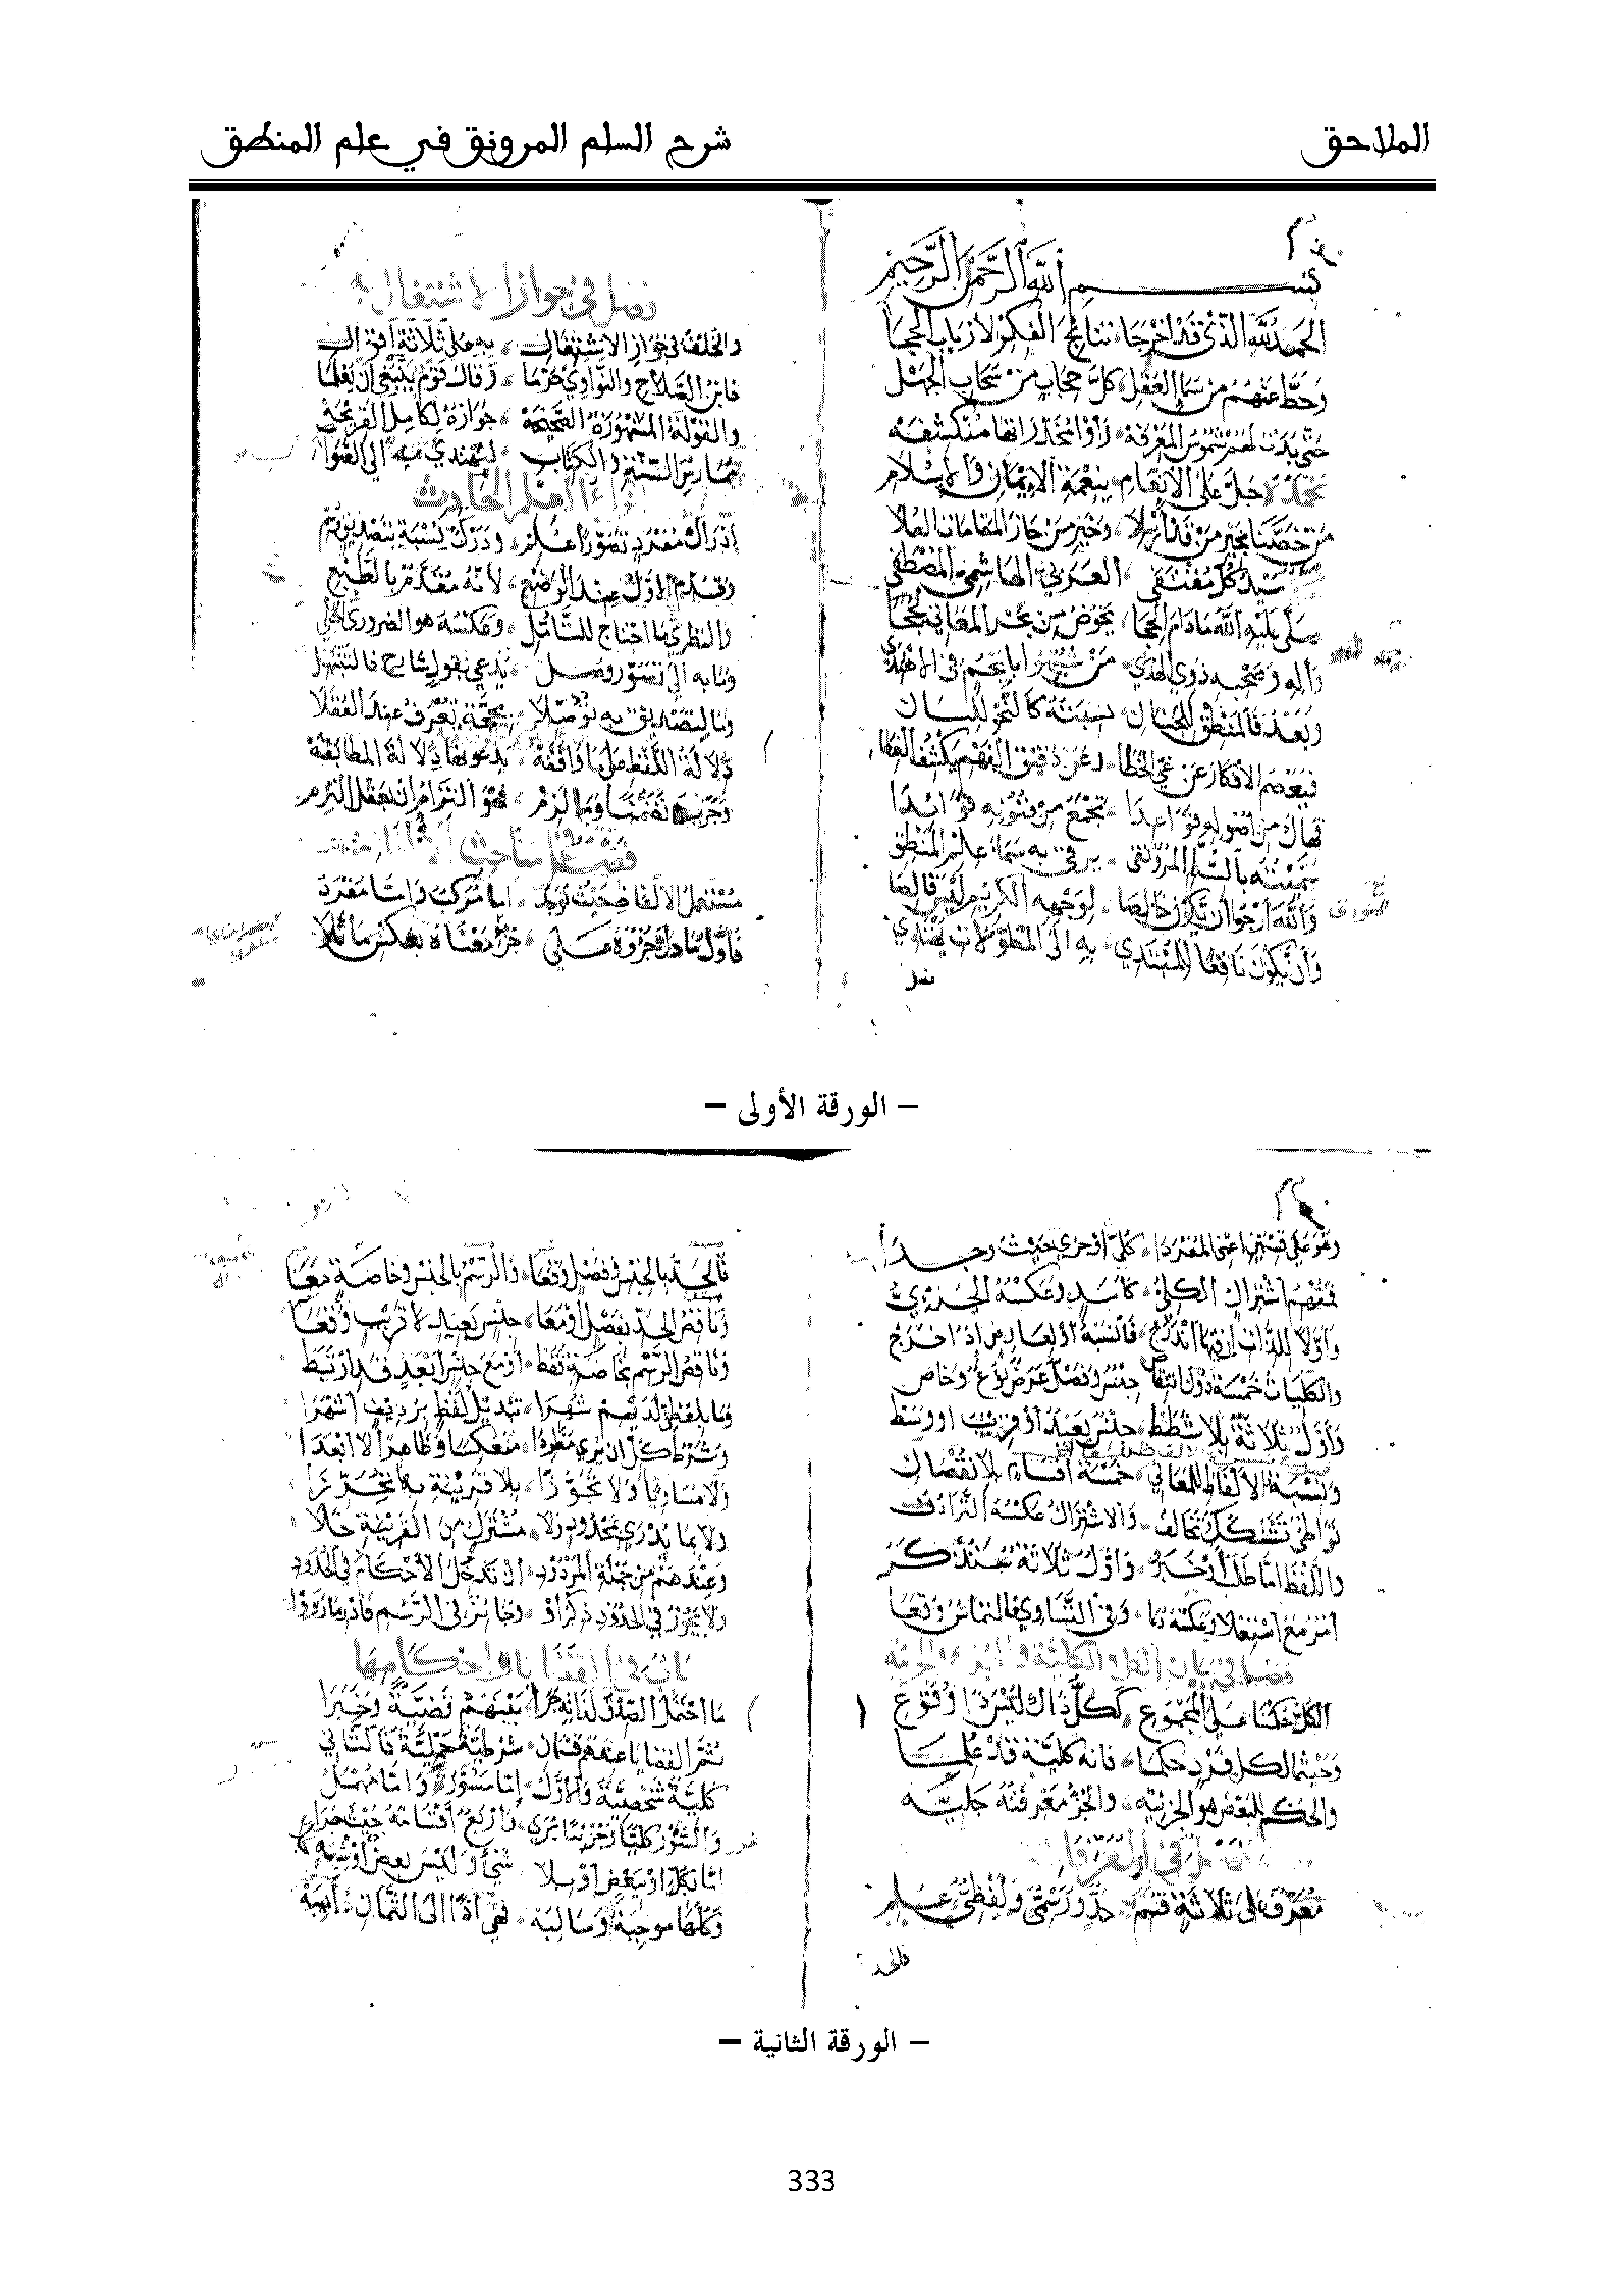 الملاحق
شرح السلم المرونق في علم المنطق
بسم الله الرحمن الرحيم
الحمد لله الذي قد أخرجا نتائج الفكر لأرباب الحجا
وحط عنهم من سما العقل كل حجاب من سحاب الجهل
حتى بدت لهم شموس المعرفة رأوا مخدراتها منكشفه
نحمده جل على الإنعام بنعمة الإيمان والإسلام
من خصنا بخير من قد أرسلا وخير من حاز المقامات العلا
سيد كل مقتفى العربي الهاشمي المصطفى
صلى عليه الله مادام الحجا يخوض من بحر المعاني لججا
وآله وصحبه ذوي الهدى من شبهوا بأنجم في الاهتدى
وبعد فالمنطق للجنان نسبته كالنحو للسان
فيعصم الأفكار عن غي الخطا وعن دقيق الفهم يكشف الغطا
فهاك من أصوله قواعدا تجمع من فنونه فوائدا
سميته بالسلم المرونق يرقى به سماء علم المنطق
والله أرجو أن يكون خالصا لوجهه الكريم ليس قالصا
وأن يكون نافعا للمبتدي به إلى المطولات يهتدي
فصل في جواز الاشتغال
والخلف في جواز الاشتغال به على ثلاثة أقوال
فابن الصلاح والنواوي حرما وقال قوم ينبغي أن يعلما
والقولة المشهورة الصحيحة جوازه لكامل القريحة
ممارس السنة والكتاب ليهتدي به إلى الصواب
أنواع العلم الحادث
إدراك مفرد تصورا علم ودرك نسبة بتصديق وسم
وقدم الأول عند الوضع لأنه مقدم بالطبع
والنظري ما احتاج للتأمل وعكسه هو الضروري الجلي
وما به إلى تصور وصل يدعى بقول شارح فلتبتهل
وما لتصديق به توصلا بحجة يعرف عند العقلا
دلالة اللفظ على ما وافقه يدعونها دلالة المطابقة
وجزئه تضمنا وما لزم فهو التزام إن بعقل التزم
فصل في مباحث الألفاظ
مستعمل الألفاظ حيث يوجد إما مركب وإما مفرد
فأول ما دل جزؤه على جزء معناه بعكس ما تلا
– الورقة الأولى –
وهو على قسمين أعني المفردا كلي أو جزئي حيث وجدا
فمفهم اشتراك الكلي كأسد وعكسه الجزئي
وأولا للذات إن فيها اندرج فانسبه أو لعارض إذا خرج
والكليات خمسة دون انتقاص جنس وفصل عرض نوع وخاص
وأول ثلاثة بلا شطط جنس بعيد أو قريب أو وسط
ونسبة الألفاظ للمعاني خمسة أقسام بلا نقصان
تواطؤ تشكك تخالف والاشتراك عكسه الترادف
واللفظ إما طلب أو خبر وأول ثلاثة ستذكر
أمر مع استعلا وعكسه دعا وفي التساوي فالتماس وقعا
فصل في بيان الكل والكلية والجزء والجزئية
الكل حكمنا على المجموع ككل ذاك ليس ذا وقوع
وحيثما لكل فرد حكما فإنه كلية قد علما
والحكم للبعض هو الجزئيه والجزء معرفته جليه
فصل في المعرفات
معرف إلى ثلاثة قسم حد ورسمي ولفظي علم
فالحد
فالحد بالجنس وفصل وقعا والرسم بالجنس وخاصة معا
وناقص الحد بفصل أو معا جنس بعيد لا قريب وقعا
وناقص الرسم بخاصة فقط أو مع جنس أبعد قد ارتبط
وما بلفظي لديهم شهرا تبديل لفظ برديف أشهرا
وشرط كل أن يرى مطردا منعكسا وظاهرا لا أبعدا
ولا مساويا ولا تجوزا بلا قرينة بها تحرزا
ولا بما يدرى بمحدود ولا مشترك من القرينة خلا
وعندهم من جملة المردود أن تدخل الأحكام في الحدود
ولا يجوز في الحدود ذكر أو وجائز في الرسم فادر ما رووا
باب في القضايا وأحكامها
ما احتمل الصدق لذاته جرى بينهم قضية وخبرا
ثم القضايا عندهم قسمان شرطية حملية فالثاني
كلية شخصية والأول إما مسور وإما مهمل
والسور كليا وجزئيا يرى وأربع أقسامه حيث جرى
إما بكل أو ببعض أو بلا شيء وليس بعض أو شبه جلا
وكلها موجبة وسالبة فهي إذا إلى الثمان آيبة
– الورقة الثانية –
333